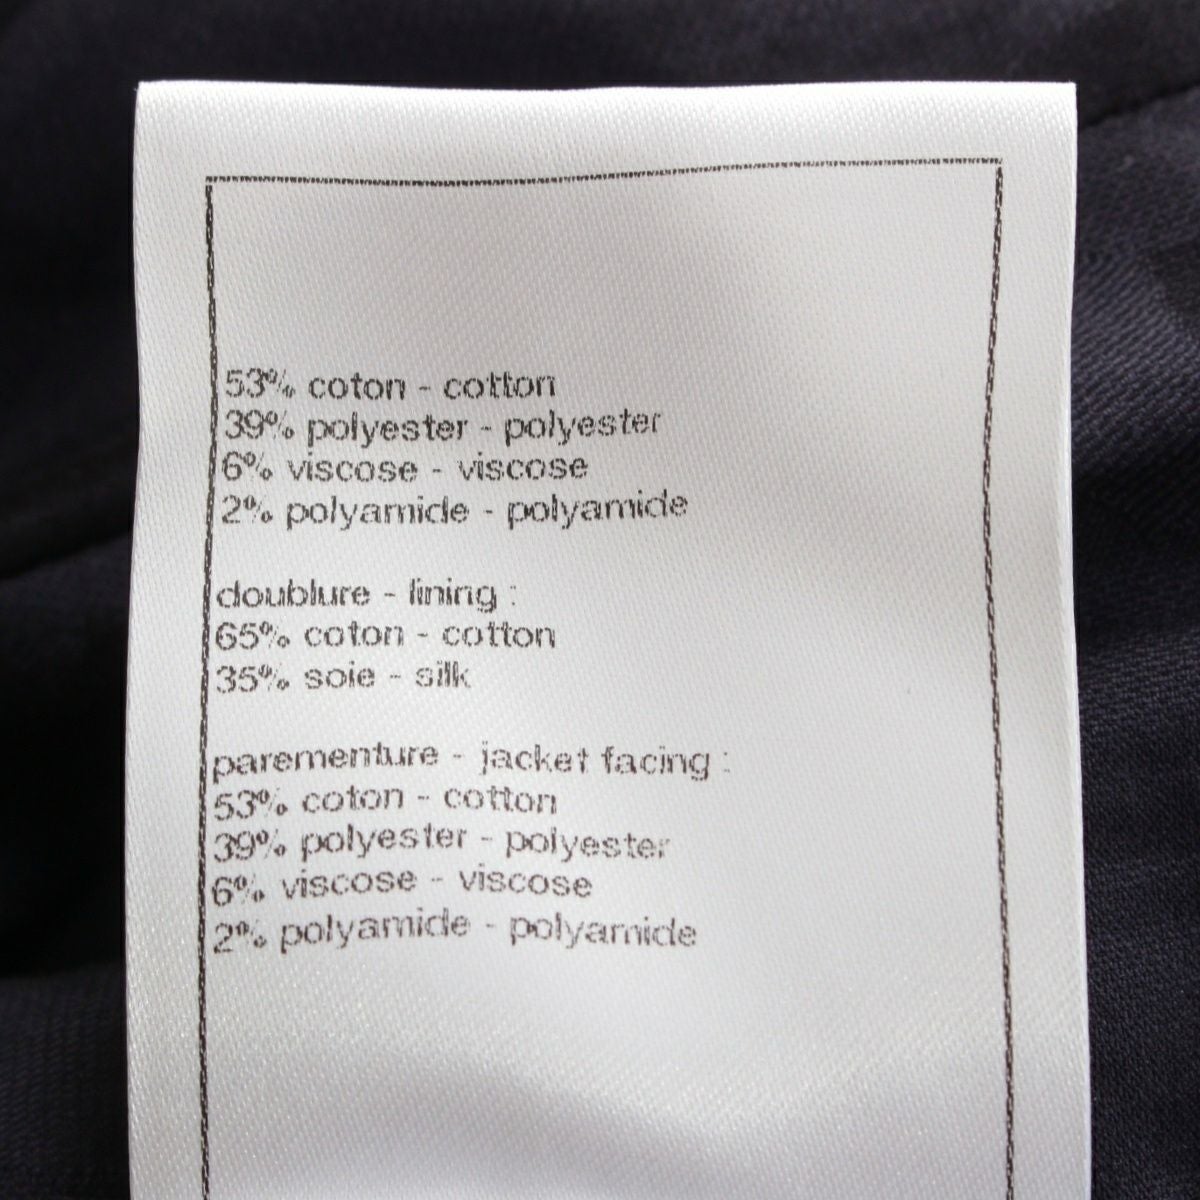 53% coton - cotton
39% polyester - polyester
6% viscose - viscose
2% polyamide - polyamide
doublure - lining :
65% coton - cotton
35% soie - silk
parementure - jacket facing :
53% coton - cotton
39% polyester - polyester
6% viscose - viscose
2% polyamide - polyamide